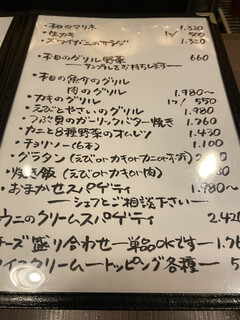 ・本日のマリネ 1.320
・生カキ 1ヶ 500
・ズワイガニのサラダ 1.320
・本日のグリル野菜 660
―サンプルをお持ちします―
・本日の魚介のグリル
肉のグリル 1.980〜
・カキのグリル 1ヶ 550
・えびとやさいのグリル 1.980
・つぶ貝のガーリックバター焼き 1.760
・カニと8種野菜のオムレツ 1.430
・チョリソー(6本) 1.100
・グラタン(えびorカキorカニorホタテ)
・焼き飯(えびorカキor肉)
・おまかせスパゲティ 1.980〜
―シェフとご相談下さい―
ウニのクリームスパゲティ 2.420
チーズ盛り合わせ―単品OKです―
アイスクリーム―トッピング各種―